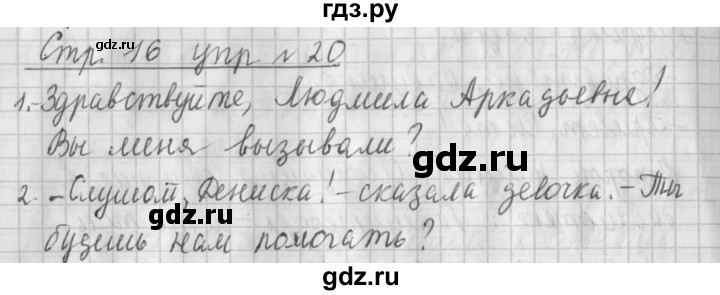 гдз.ру
Стр 16 упр № 20
gdz.ru
gdz.ru
1.-Здравствуйте, Людмила Аркадьевна!
Вы меня вызывали?
gdz.ru
2. -Слушай, Дениска! - сказала девочка. - Ты
gdz.ru
будешь нам помогать?
gdz.ru
gdz.ru